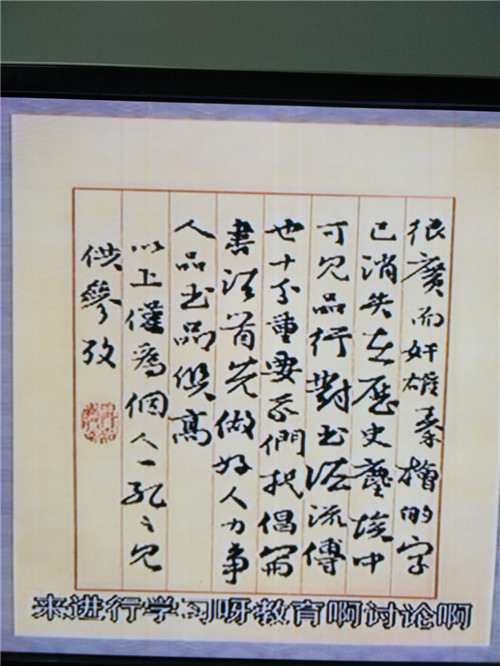 很廣而奸雄秦檜的字
已消失在歷史塵埃中
可见品行對书法流傳
也十分重要們提倡寫
書法首先做好人力争
人品书品俱高
以上僅爲個人一孔之见
供參攷
来进行学习呀教育啊讨论啊